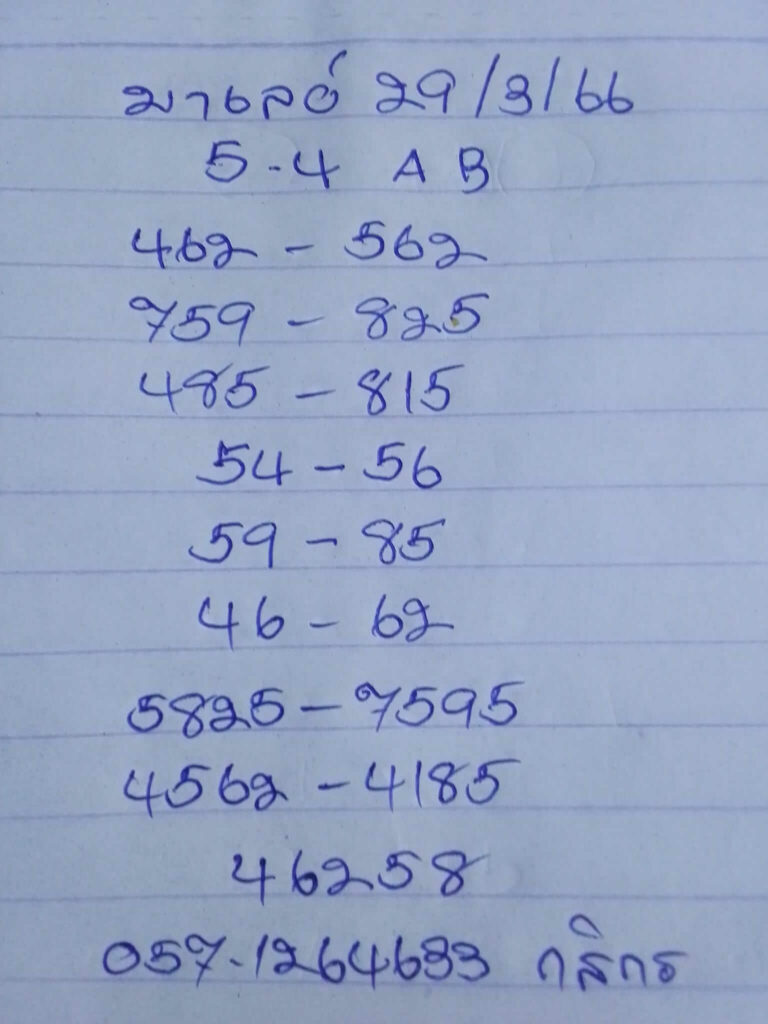 มาเลย์ 29/3/66
5-4 A B
462 - 562
759 - 825
485 - 815
54 - 56
59 - 85
46 - 62
5825 - 7595
4562 - 4185
46258
057-1264633 กสิกร